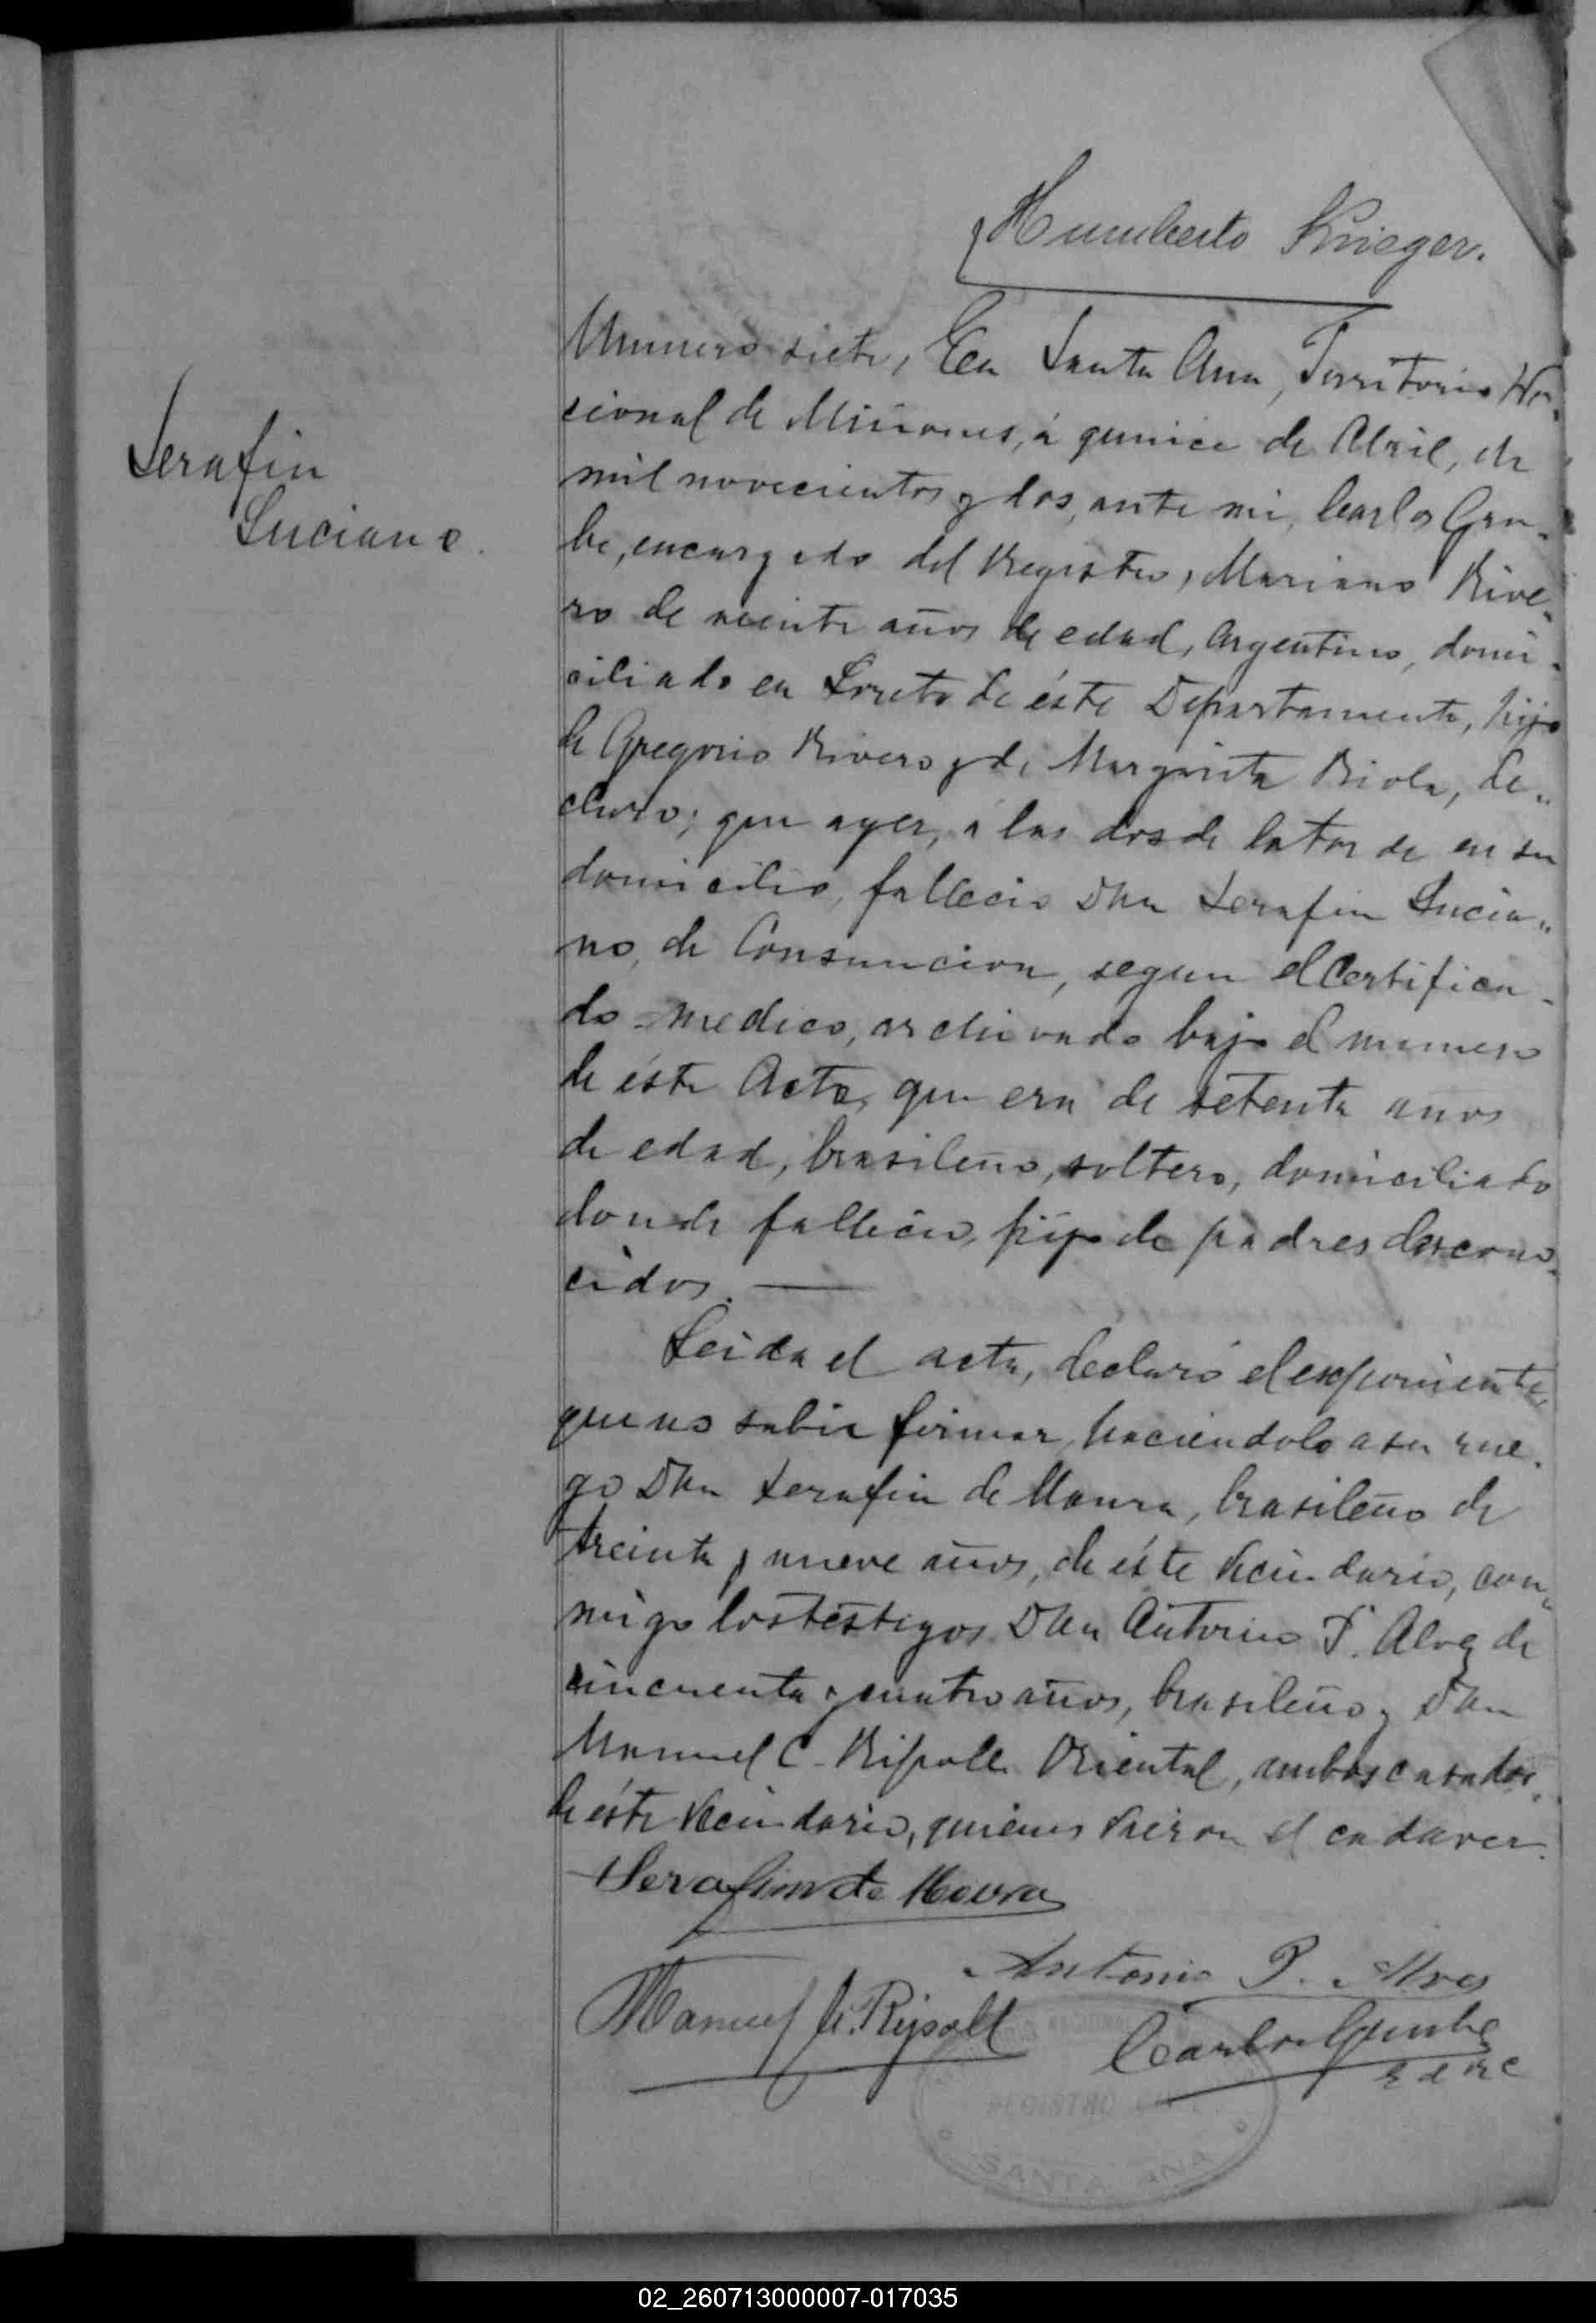 Humberto Krieger.
Serafin
Luciano.
Numero siete, En Santa Ana, Territorio Na-
cional de Misiones, á quince de Abril, de
mil novecientos y dos, ante mi, Carlos Gru-
be, encargado del Registro, Mariano Rive-
ro de veinte años de edad, Argentino, domi-
ciliado en Loreto de éste Departamento, hijo
de Gregorio Rivero y de Margarita Riola, de-
claro; que ayer, a las dos de la tarde en su
domicilio, fallecio Don Serafin Lucia-
no, de Consuncion, segun el Certifica-
do medico, archivado bajo el numero
de ésta Acta, que era de setenta años
de edad, brasileño, soltero, domiciliado
donde fallecio, hijo de padres descono-
cidos.
Leida el acta, declaró el exponiente,
que no sabia firmar, haciendolo a su rue-
go Don Serafin de Moura, brasileño de
treinta y nueve años, de éste Vecindario, con-
migo los testigos Don Antonio P. Alves de
cincuenta y cuatro años, brasileño y Don
Manuel C. Ripoll Oriental, ambos casados,
de éste Vecindario, quienes vieron el cadaver.
Serafim de Moura
Antonio P. Alves
Manuel C. Ripoll
Carlos Grube
E d R C
REGISTRO
SANTA ANA
02_260713000007-017035